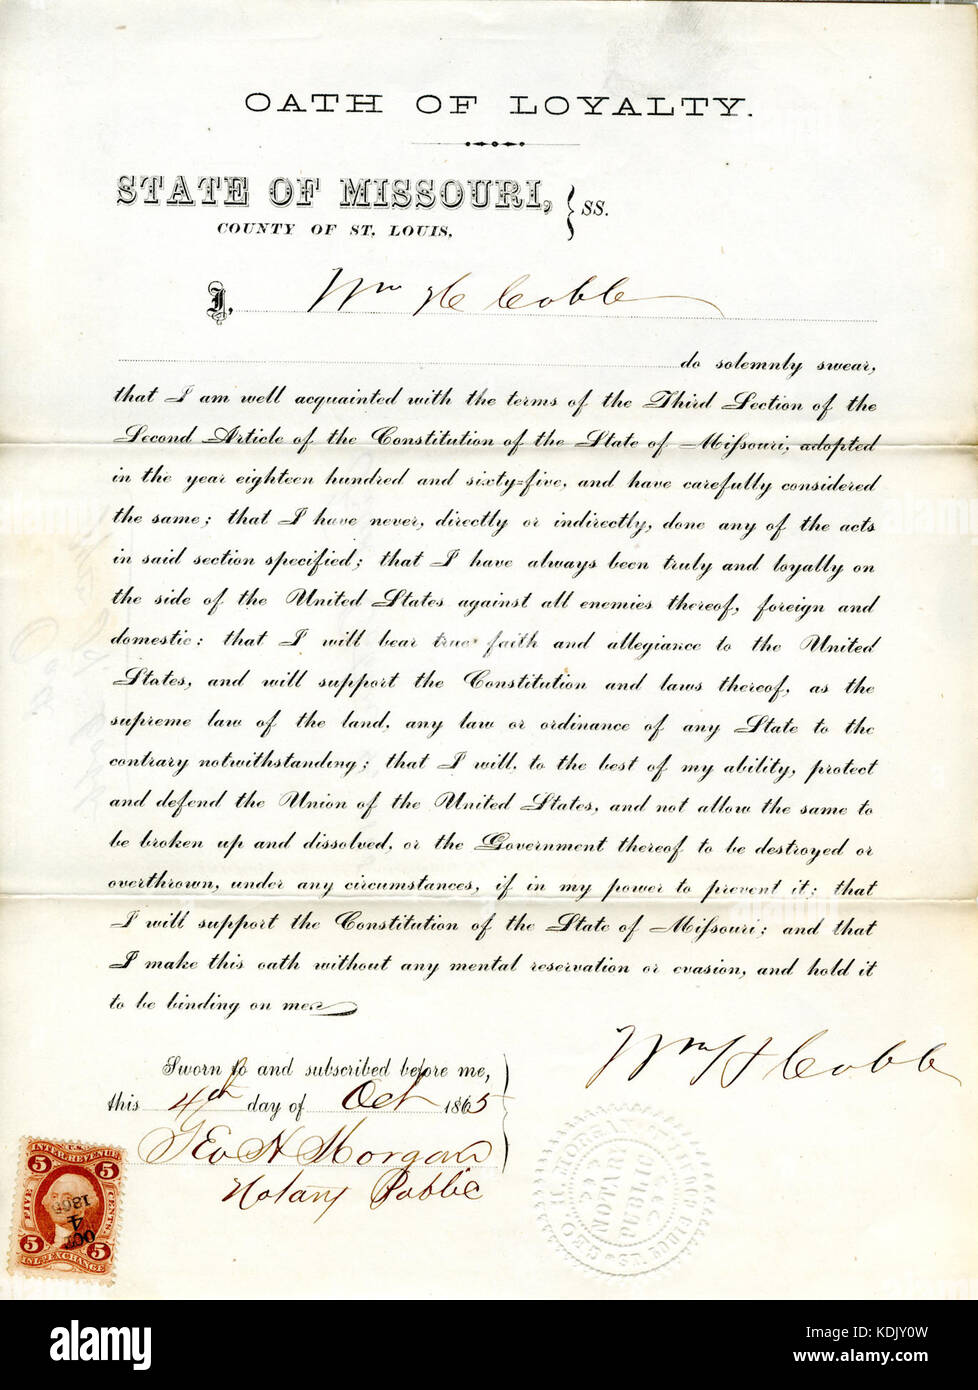 OATH OF LOYALTY.
STATE OF MISSOURI, } SS.
COUNTY OF ST. LOUIS.
I, Wm H Cobb
do solemnly swear,
that I am well acquainted with the terms of the Third Section of the
Second Article of the Constitution of the State of Mifsouri, adopted
in the year eighteen hundred and sixty=five, and have carefully considered
the same; that I have never, directly or indirectly, done any of the acts
in said section specified; that I have always been truly and loyally on
the side of the United States against all enemies thereof, foreign and
domestic: that I will bear true faith and allegiance to the United
States, and will support the Constitution and laws thereof, as the
supreme law of the land, any law or ordinance of any State to the
contrary notwithstanding; that I will, to the best of my ability, protect
and defend the Union of the United States, and not allow the same to
be broken up and dissolved, or the Government thereof to be destroyed or
overthrown, under any circumstances, if in my power to prevent it; that
I will support the Constitution of the State of Mifsouri; and that
I make this oath without any mental reservation or evasion, and hold it
to be binding on me
Wm H Cobb
Sworn to and subscribed before me,
this 4th day of Oct 1865
Geo H Morgan
Notary Public
5 U.S. 5
INTER. REVENUE
FIVE CENTS
OCT 4 186
5 5
INL. EXCHANGE
GEO. H. MORGAN
NOTARY
PUBLIC
ST. LOUIS
alamy
Image ID: KDJY0W
www.alamy.com